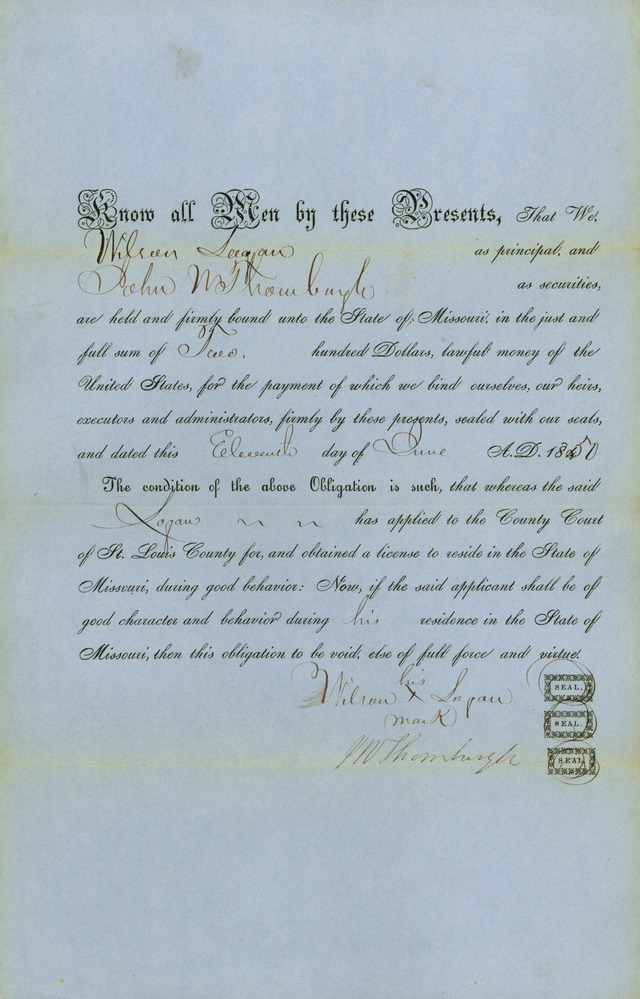 Know all Men by these Presents, That We,
Wilson Logan as principal, and
John W Thornburgh as securities,
are held and firmly bound unto the State of Missouri, in the just and
full sum of Two. hundred Dollars, lawful money of the
United States, for the payment of which we bind ourselves, our heirs,
executors and administrators, firmly by these presents, sealed with our seals,
and dated this Eleventh day of June A.D. 1850
The condition of the above Obligation is such, that whereas the said
Logan " " has applied to the County Court
of St. Louis County for, and obtained a license to reside in the State of
Missouri, during good behavior: Now, if the said applicant shall be of
good character and behavior during his residence in the State of
Missouri, then this obligation to be void, else of full force and virtue.
his
Wilson X Logan SEAL.
mark SEAL.
J W Thornburgh SEAL